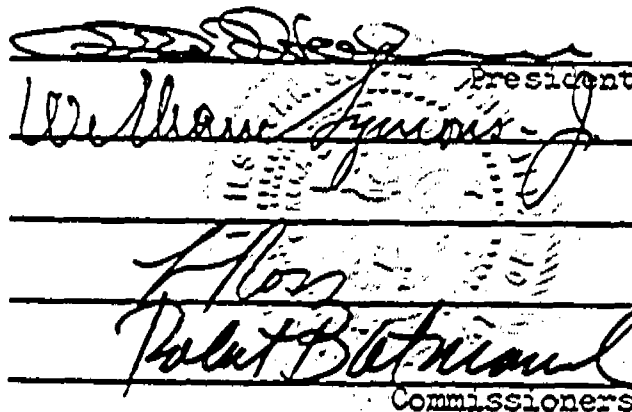 President
William Symons Jr.
Ross
Robert Batinovich
Commissioners